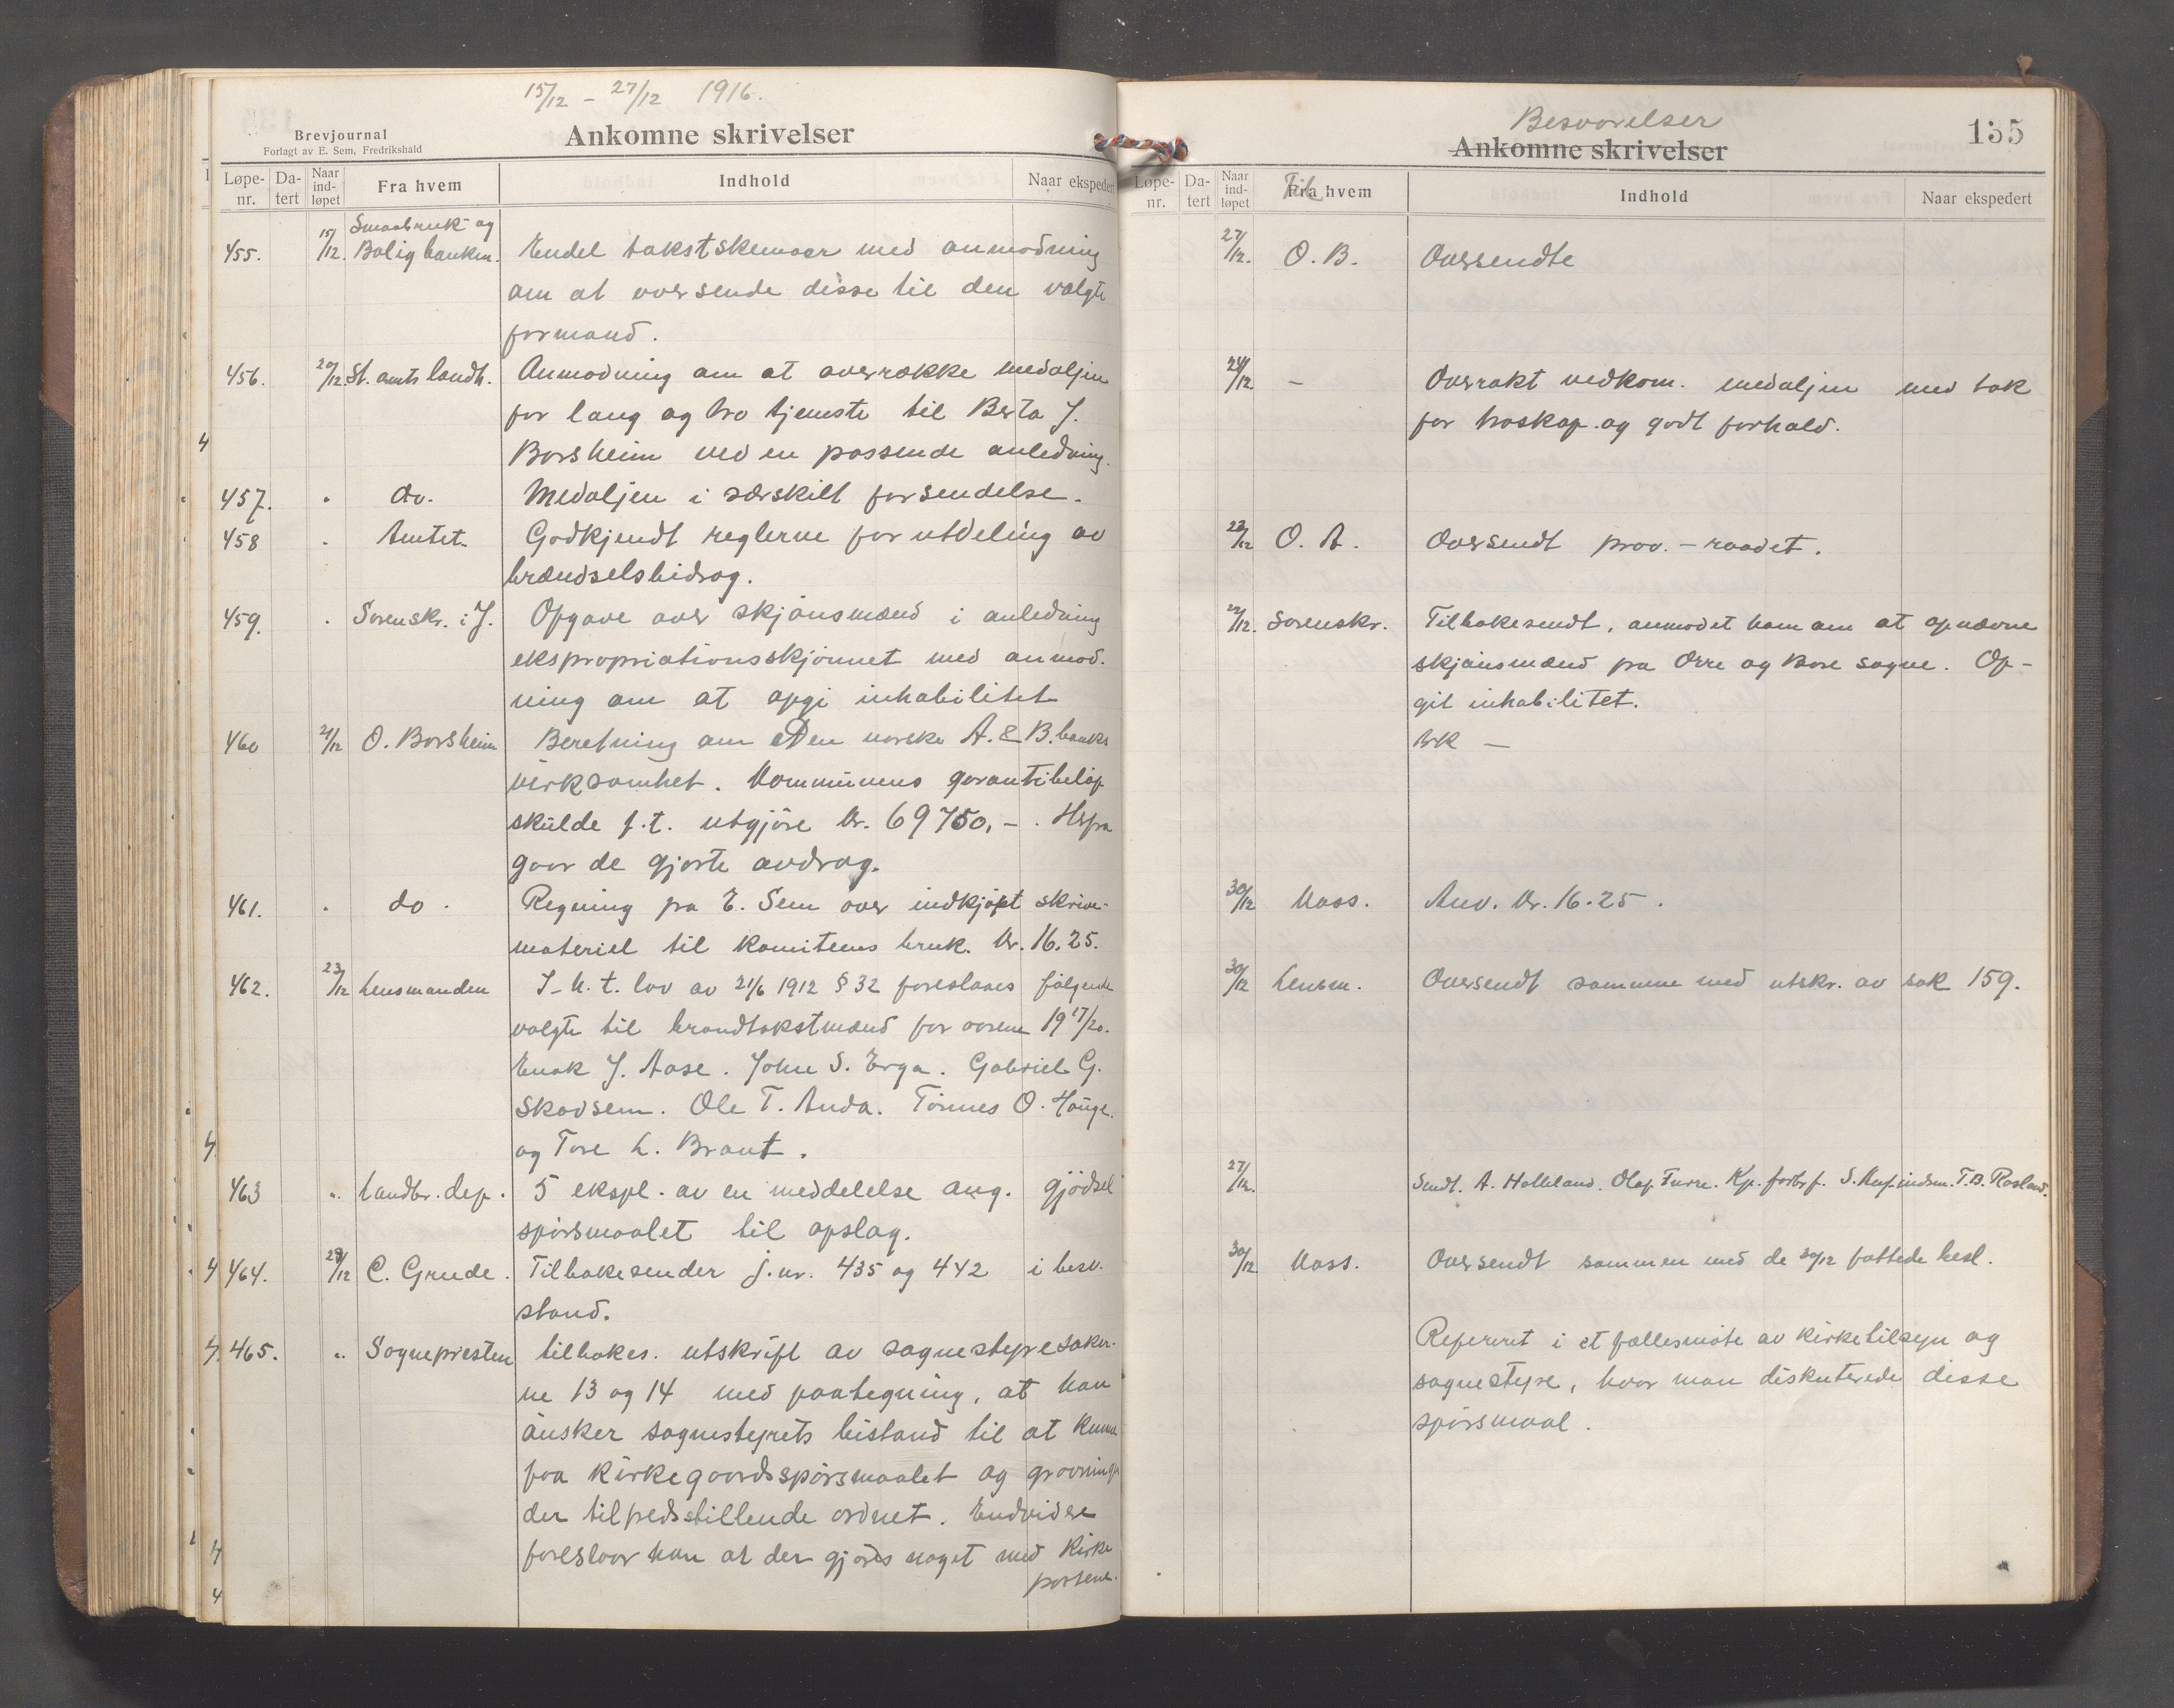 15/12 – 27/12 1916.
Brevjournal
Forlagt av E. Sem, Fredrikshald
Ankomne skrivelser
Løpe-nr. Da-tert Naar ind-løpet Fra hvem Indhold Naar ekspedert
Smaabruk- og
455. 15/12. Boligbanken. Endel takstskemaer med anmodning
om at oversende disse til den valgte
formand.
456. 20/12 St. amts landh. Anmodning om at overrække medaljen
for lang og tro tjeneste til Berta J.
Borsheim ved en passende anledning.
457. " do. Medaljen i særskilt forsendelse.
458 " Amtet. Godkjendt reglerne for utdeling av
brændselsbidrag.
459. " Sorenskr. i J. Opgave over skjönsmænd i anledning
ekspropriationsskjönnet med anmod-
ning om at opgi inhabilitet
460 21/12 O. Borsheim Beretning om Den norske A. & B. banks
virksomhet. Kommunens garantibelöp
skulde f.t. utgjöre kr. 69750,-. Herfra
gaar de gjorte avdrag.
461. " do. Regning fra E. Sem over indkjöpt skrive-
materiel til komiteens bruk. kr. 16.25.
462. 23/12 Lensmanden I h. t. lov av 21/6 1912 § 32 foreslaaes fölgende
valgte til brandtakstmænd for aarene 1917/20.
Enok J. Aase. John S. Erga. Gabriel G.
Skadsem. Ole T. Anda. Tönnes O. Hauge.
og Tore L. Braut.
463 " Landbr. dep. 5 ekspl. av en meddelelse ang. gjödsel
spörsmaalet til opslag.
464. 27/12 C. Grude. Tilbakesender j.nr. 435 og 442 i besv.
stand.
465. " Sognepresten tilbakes. utskrift av sognestyresaker-
ne 13 og 14 med paategning, at han
önsker sognestyrets bistand til at kunne
faa kirkegaardsspörsmaalet og
der tilfredsstillende ordnet. Endvidere
foreslaar han at der gjöres noget med kirke
portene.
Besvarelser
Ankomne skrivelser
155
Løpe-nr. Da-tert Naar ind-løpet Fra hvem Til Indhold Naar ekspedert
27/12. O. B. Oversendte
24/12 – Overrakt vedkom. medaljen med tak
for troskap og godt forhold.
22/12 O. A. Oversendt prov.-raadet.
22/12. Sorenskr. Tilbakesendt, anmodet ham om at opnævne
skjönsmænd fra Orre og Bore sogne. Op-
git inhabilitet.
30/12 Kass. Anv. kr. 16.25.
30/12 Lensm. Oversendt sammen med utskr. av sak 159.
27/12. Sendt. A. Holleland. Olaf Furre. Kp. forbr.f. T.B. Rosland.
30/12 Kass. Oversendt sammen med de 30/12 fattede besl.
Referert i et fællesmöte av kirketilsyn og
sognestyre, hvor man diskuterede disse
spörsmaal.